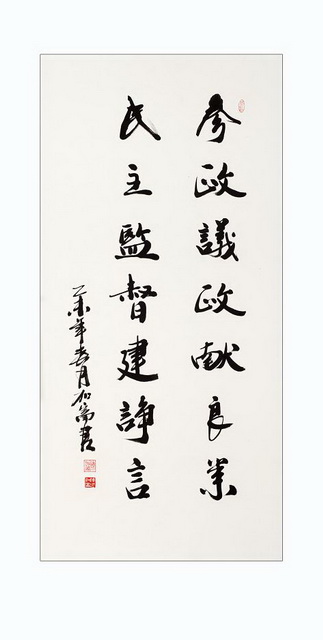 参政議政献良策
民主監督建諍言
乙未年春月書